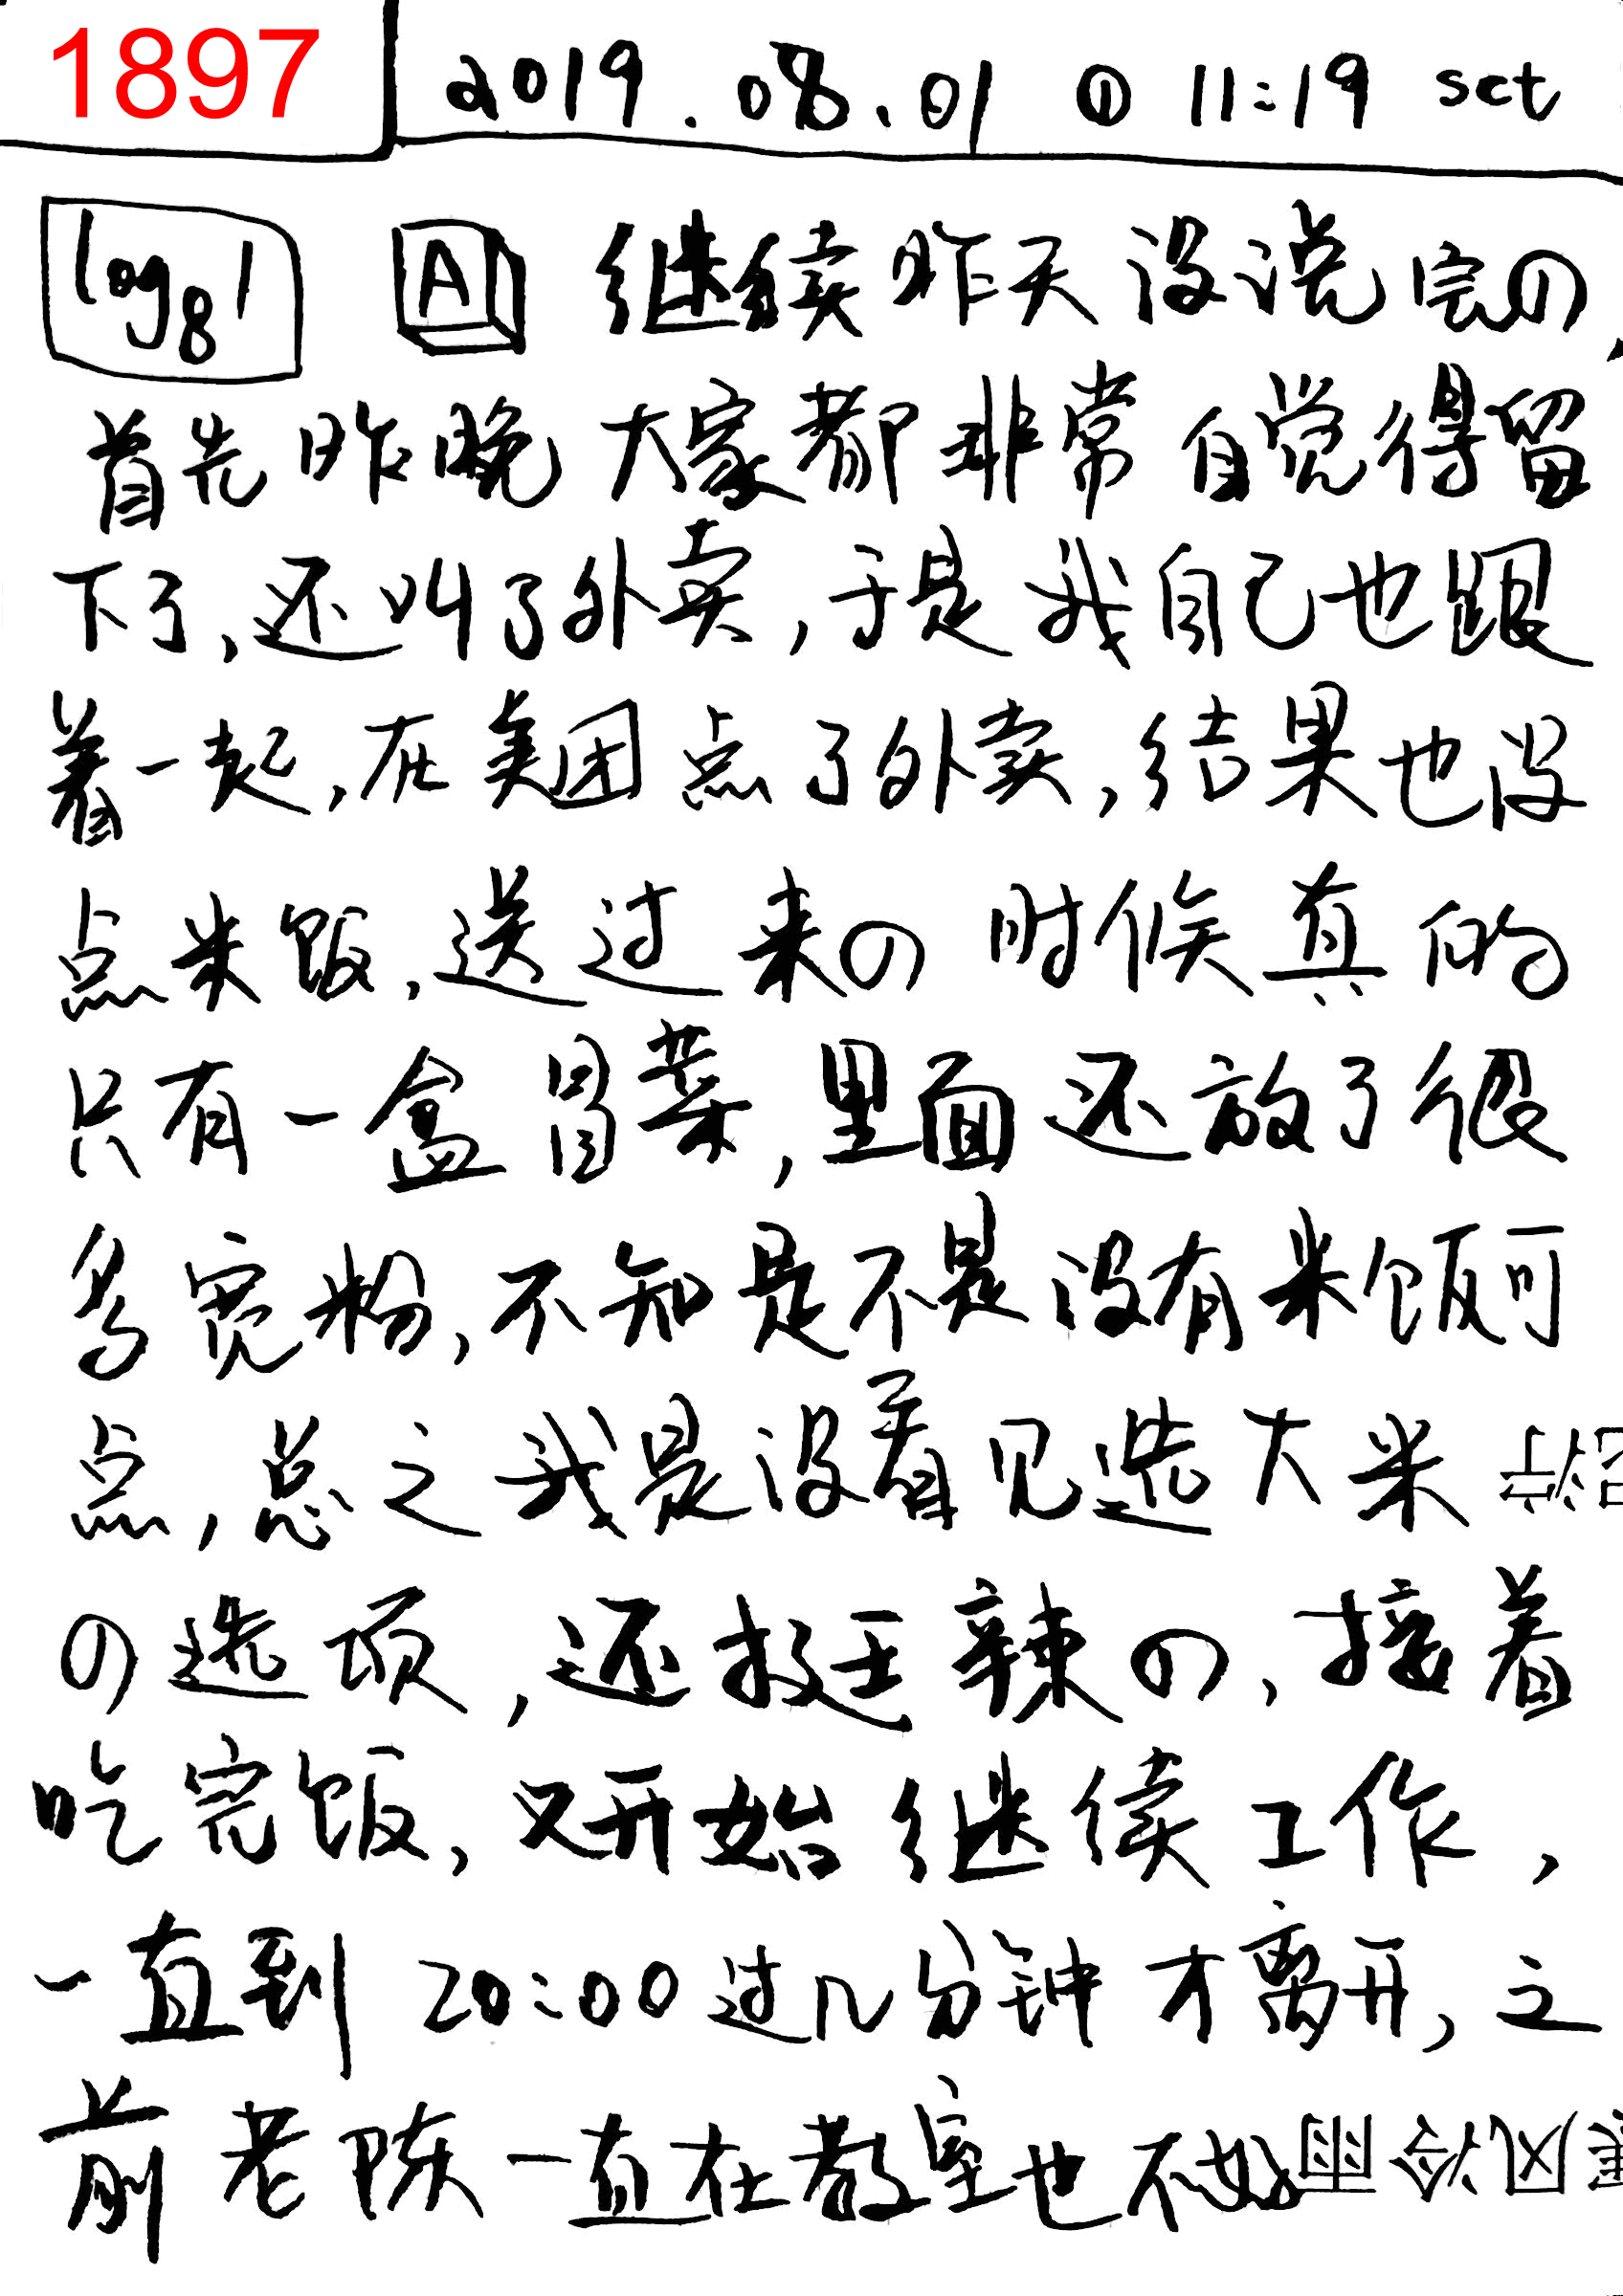 1897
2019.08.01 ① 11:19 sct
log₈1 A 继续昨天没说完の,
首先昨晚大家都非常自觉得留
下了,还叫了外卖,于是我自己也跟
着一起,在美团点了外卖,结果也没
点米饭,送过来の时候真的
只有一盒冒菜,里面还放了很
多宽粉,不知是不是没有米饭可
点,总之我是没看见选大米
の选项,还挺辣の,接着
吃完饭,又开始继续工作,
一直到20:00过几分钟才离开,之
前老陈一直在教室也不好